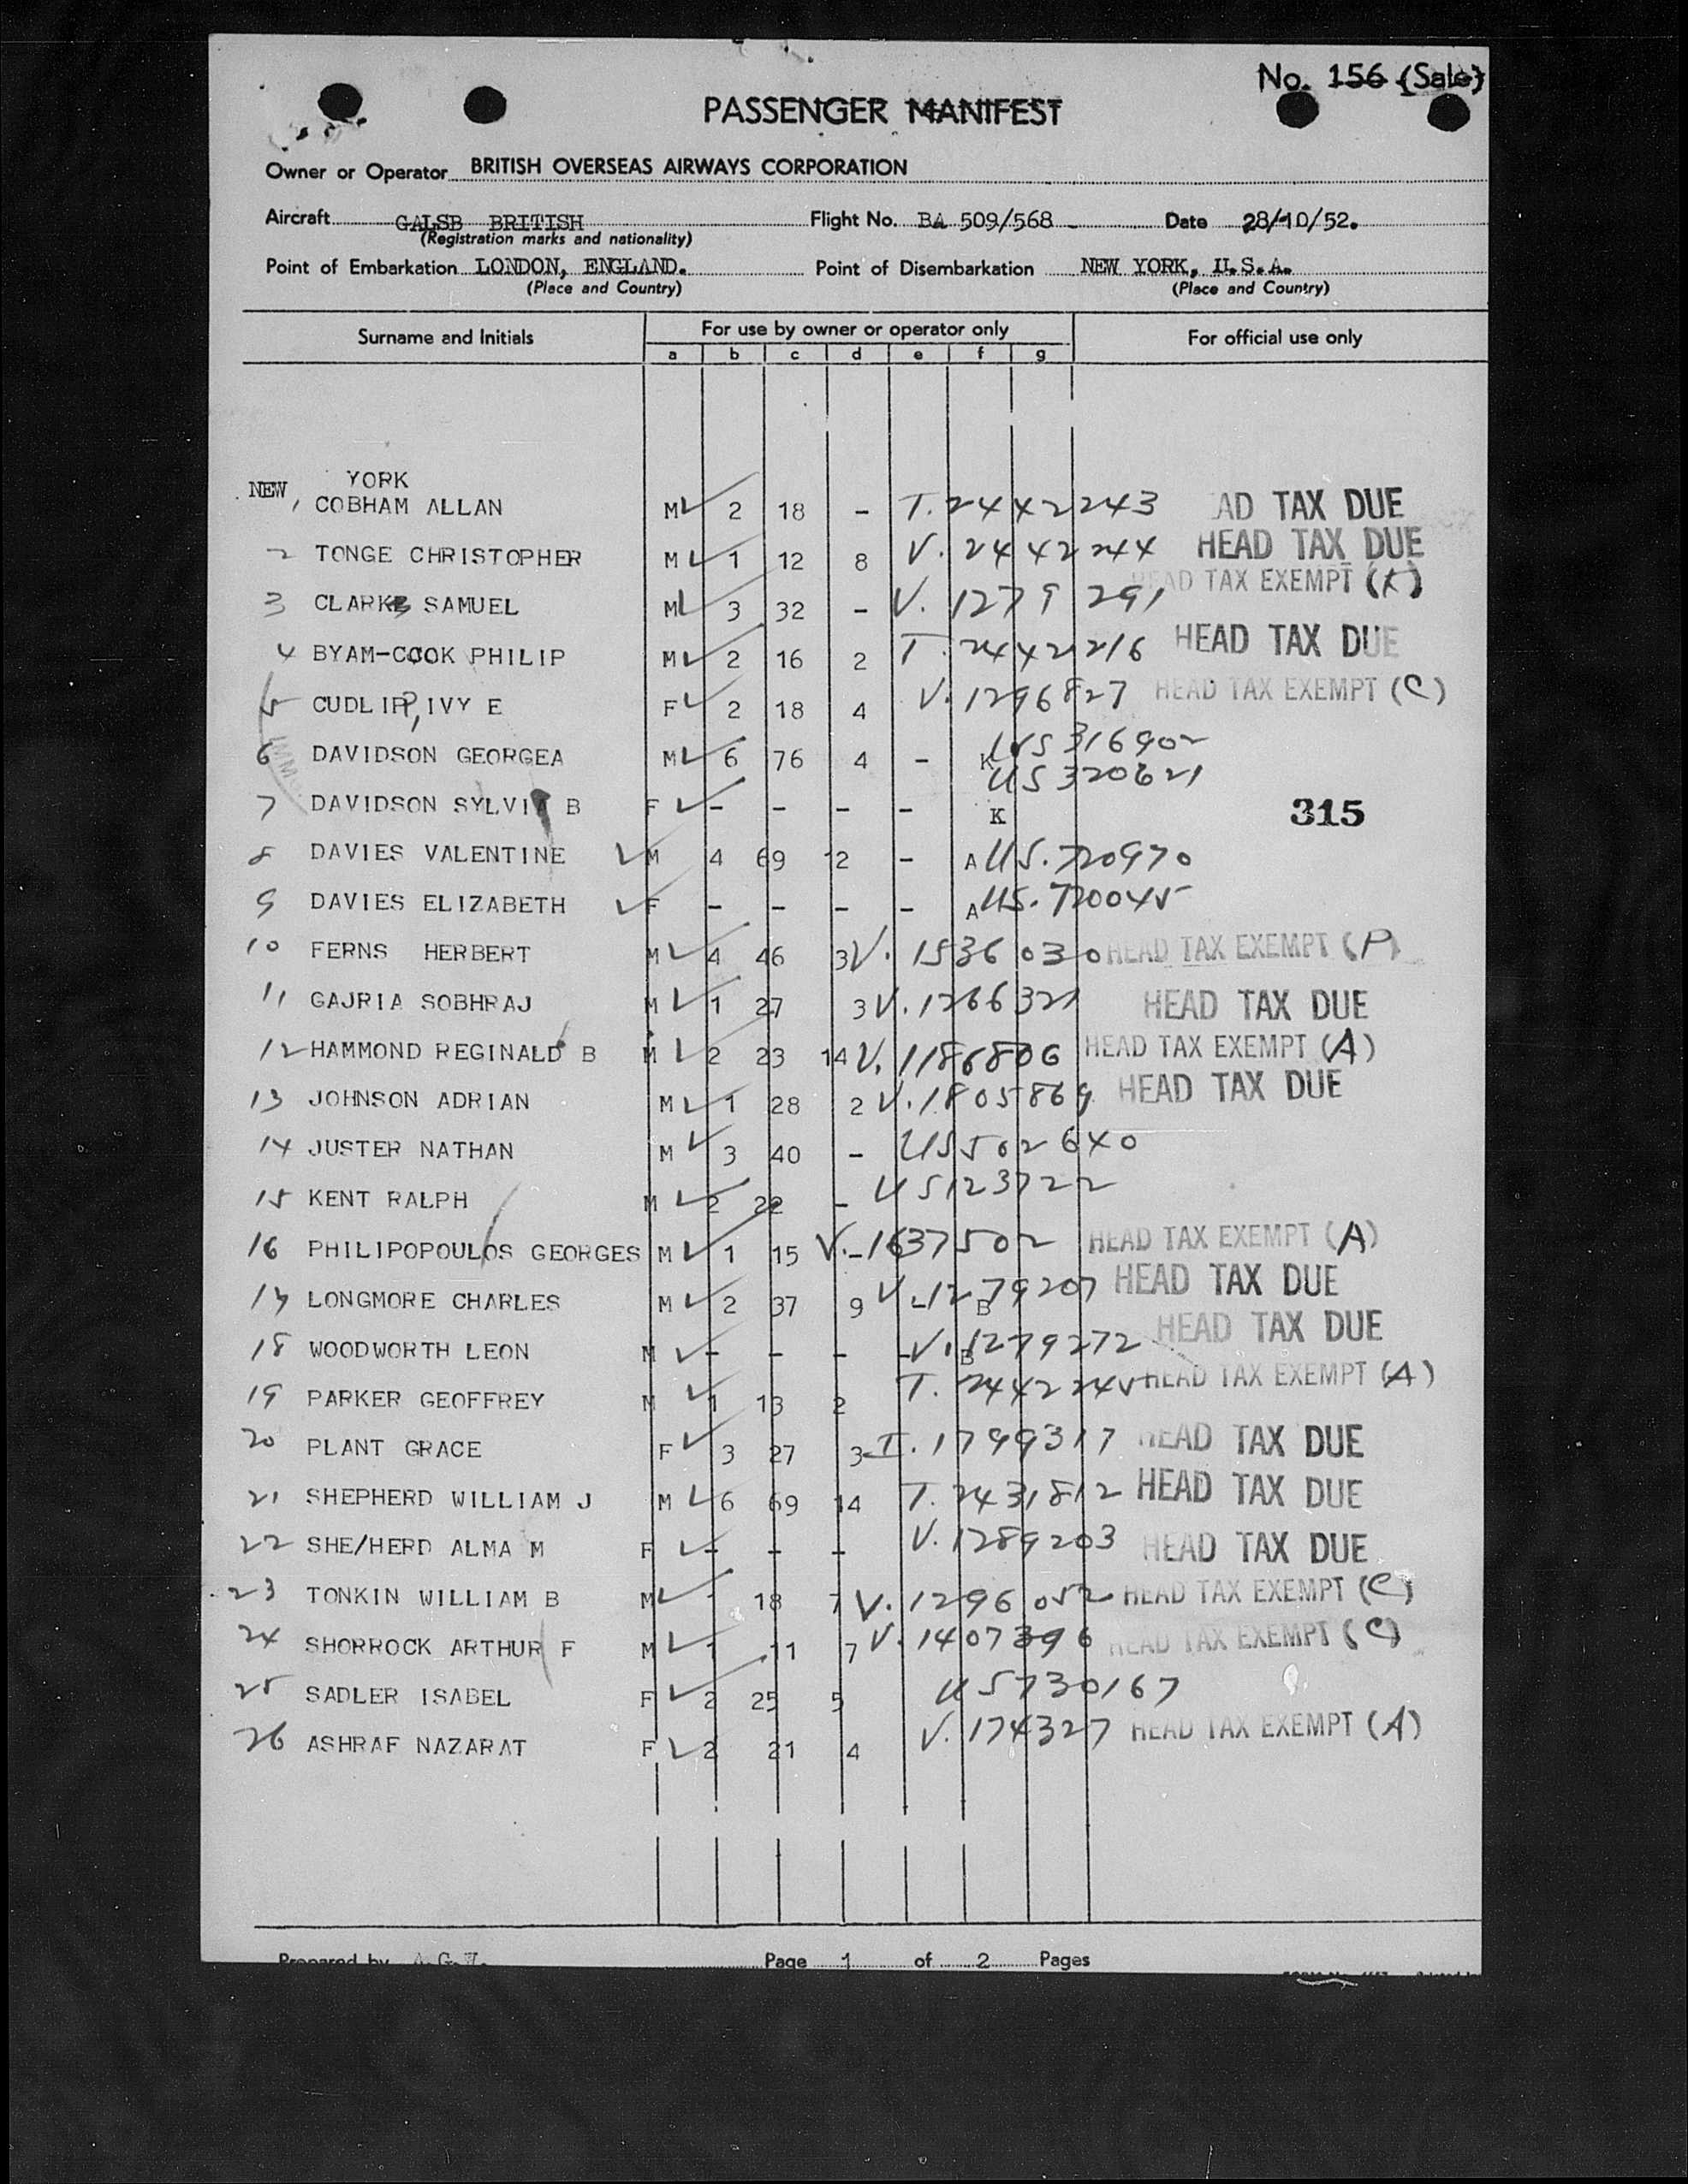 No. 156 (Sale)
PASSENGER MANIFEST
Owner or Operator BRITISH OVERSEAS AIRWAYS CORPORATION
Aircraft GALSB BRITISH Flight No. BA 509/568 Date 28/10/52.
(Registration marks and nationality)
Point of Embarkation LONDON, ENGLAND. Point of Disembarkation NEW YORK, U.S.A.
(Place and Country) (Place and Country)
Surname and Initials For use by owner or operator only For official use only
a b c d e f g
NEW YORK
1 COBHAM ALLAN M 2 18 - T. 2442243 AD TAX DUE
2 TONGE CHRISTOPHER M 1 12 8 V. 2442244 HEAD TAX DUE
3 CLARKE SAMUEL M 3 32 - V. 1279291 HEAD TAX EXEMPT
4 BYAM-COOK PHILIP M 2 16 2 T. 2442216 HEAD TAX DUE
5 CUDLIPP, IVY E F 2 18 4 V. 1296827 HEAD TAX EXEMPT (C)
6 DAVIDSON GEORGEA M 6 76 4 - K US 316902
US 320621
7 DAVIDSON SYLVIA B F - - - - K 315
8 DAVIES VALENTINE M 4 69 12 - A US. 720970
9 DAVIES ELIZABETH F - - - - A US. 720045
10 FERNS HERBERT M 4 46 3 V. 1536030 HEAD TAX EXEMPT (P)
11 GAJRIA SOBHRAJ M 1 27 3 V. 1266321 HEAD TAX DUE
12 HAMMOND REGINALD B M 2 23 14 V. 1186806 HEAD TAX EXEMPT (A)
13 JOHNSON ADRIAN M 1 28 2 V. 1805869 HEAD TAX DUE
14 JUSTER NATHAN M 3 40 - US 502640
15 KENT RALPH M 2 22 - US 123722
16 PHILIPOPOULOS GEORGES M 1 15 - V. 1637502 HEAD TAX EXEMPT (A)
17 LONGMORE CHARLES M 2 37 9 - B V. 1279207 HEAD TAX DUE
18 WOODWORTH LEON M - - - - B V. 1279272 HEAD TAX DUE
19 PARKER GEOFFREY M 1 13 2 T. 2442245 HEAD TAX EXEMPT (A)
20 PLANT GRACE F 3 27 3 T. 1799317 HEAD TAX DUE
21 SHEPHERD WILLIAM J M 6 69 14 T. 2431812 HEAD TAX DUE
22 SHE/HERD ALMA M F - - - V. 1289203 HEAD TAX DUE
23 TONKIN WILLIAM B M 1 18 7 V. 1296052 HEAD TAX EXEMPT (C)
24 SHORROCK ARTHUR F M 1 11 7 V. 1407396 HEAD TAX EXEMPT (C)
25 SADLER ISABEL F 2 25 5 US 730167
26 ASHRAF NAZARAT F 2 21 4 V. 174327 HEAD TAX EXEMPT (A)
Prepared by Page 1 of 2 Pages